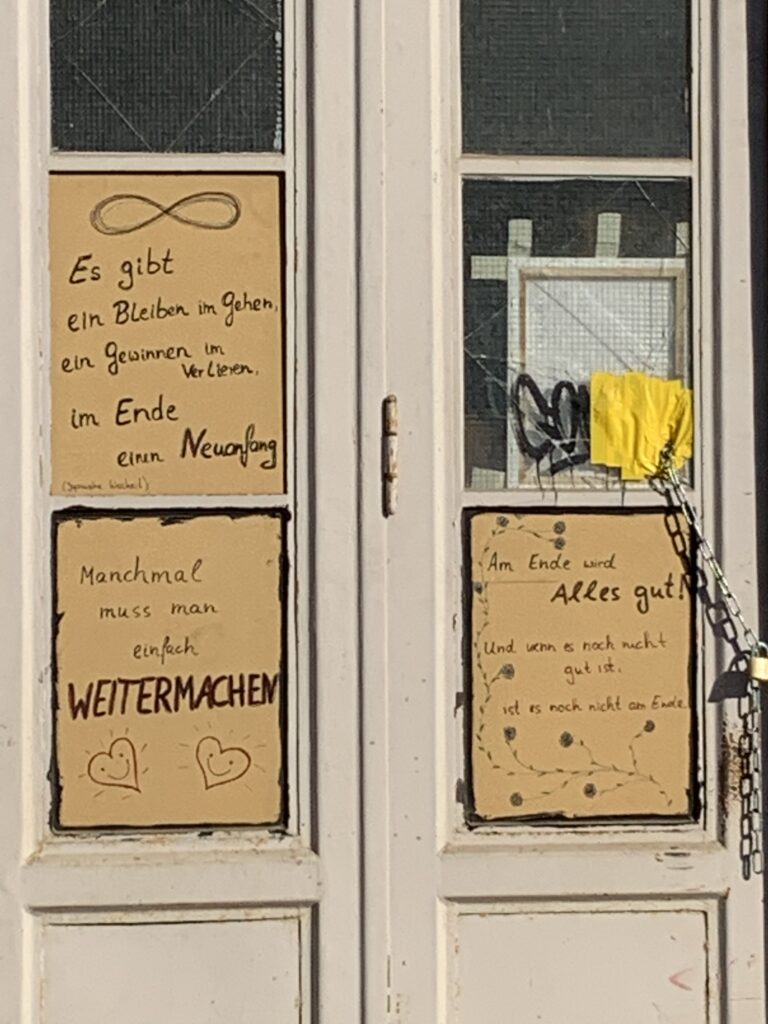 Es gibt
ein Bleiben im Gehen,
ein Gewinnen im
Verlieren,
im Ende
einen Neuanfang
Manchmal
muss man
einfach
WEITERMACHEN
Am Ende wird
Alles gut!
Und wenn es noch nicht
gut ist,
ist es noch nicht am Ende.